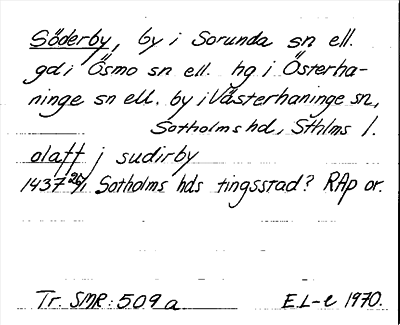 Söderby, by i Sorunda sn ell.
gd i Ösmo sn ell. hg i Österha-
ninge sn ell. by i Västerhaninge sn,
Sotholms hd, Sthlms l.
olaff j sudirby
1437 26/1 Sotholms hds tingsstad? RAp or.
Tr. SMR: 509 a EL-e 1970.